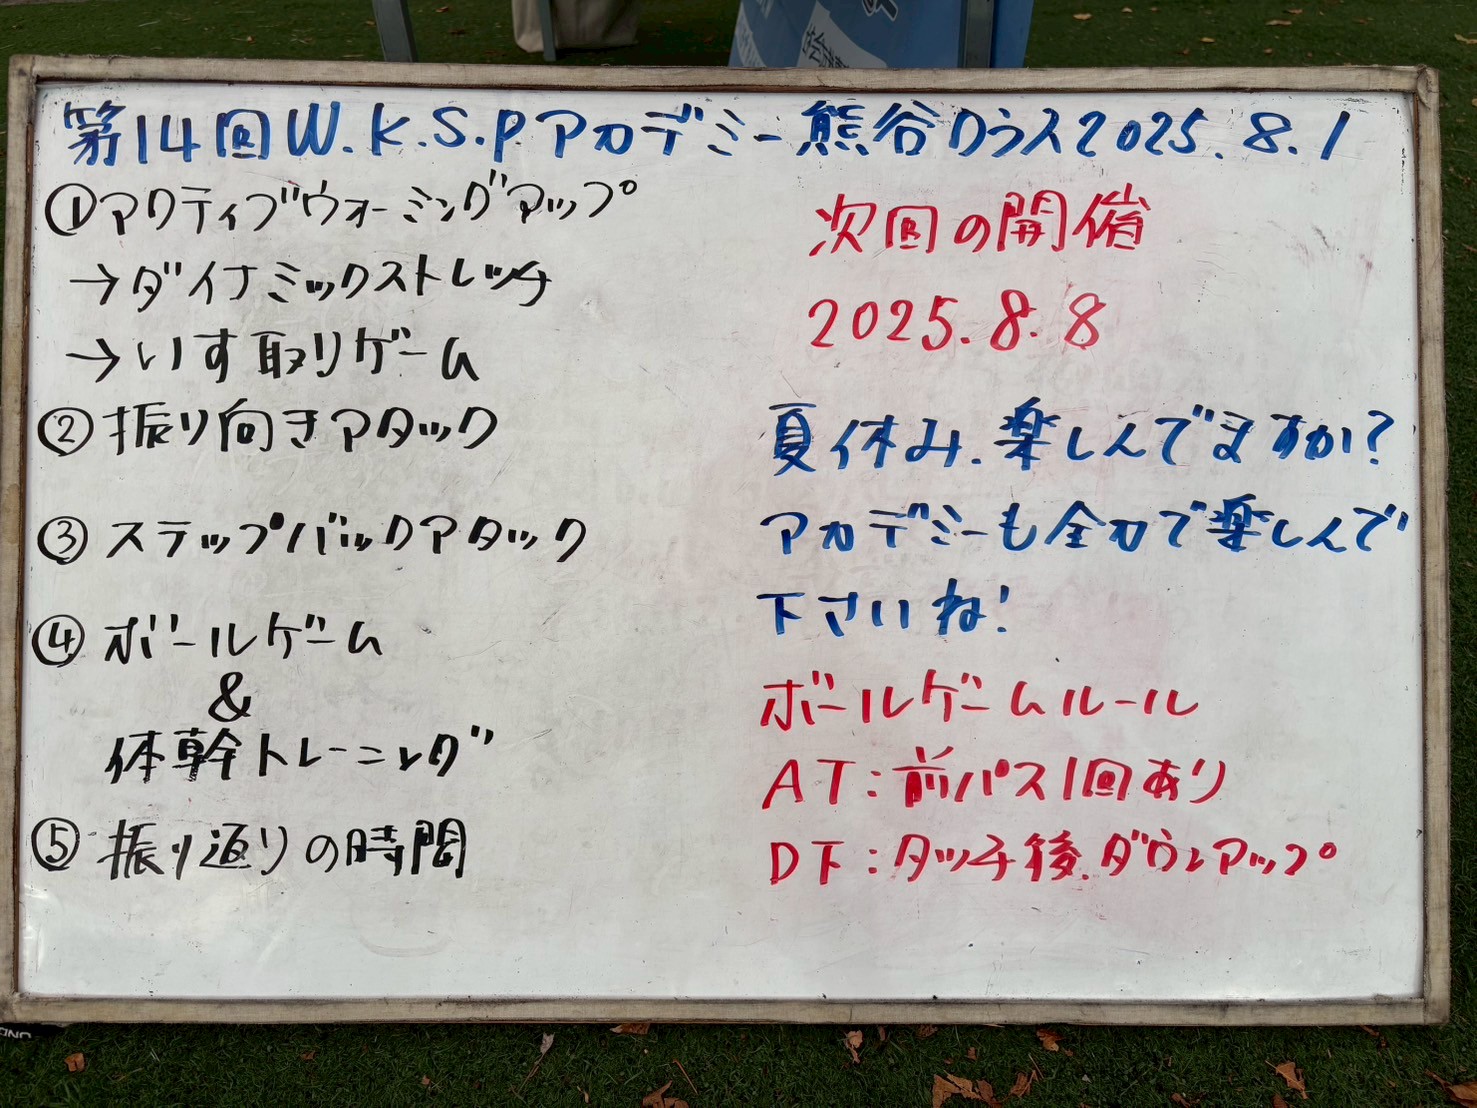 第14回W.K.S.Pアカデミー熊谷クラス2025.8.1
①アクティブウォーミングアップ
→ダイナミックストレッチ
→いす取りゲーム
②振り向きアタック
③ステップバックアタック
④ボールゲーム
&
体幹トレーニング
⑤振り返りの時間
次回の開催
2025.8.8
夏休み.楽しんでますか?
アカデミーも全力で楽しんで
下さいね!
ボールゲームルール
AT:前パス1回あり
DF:タッチ後.ダウンアップ